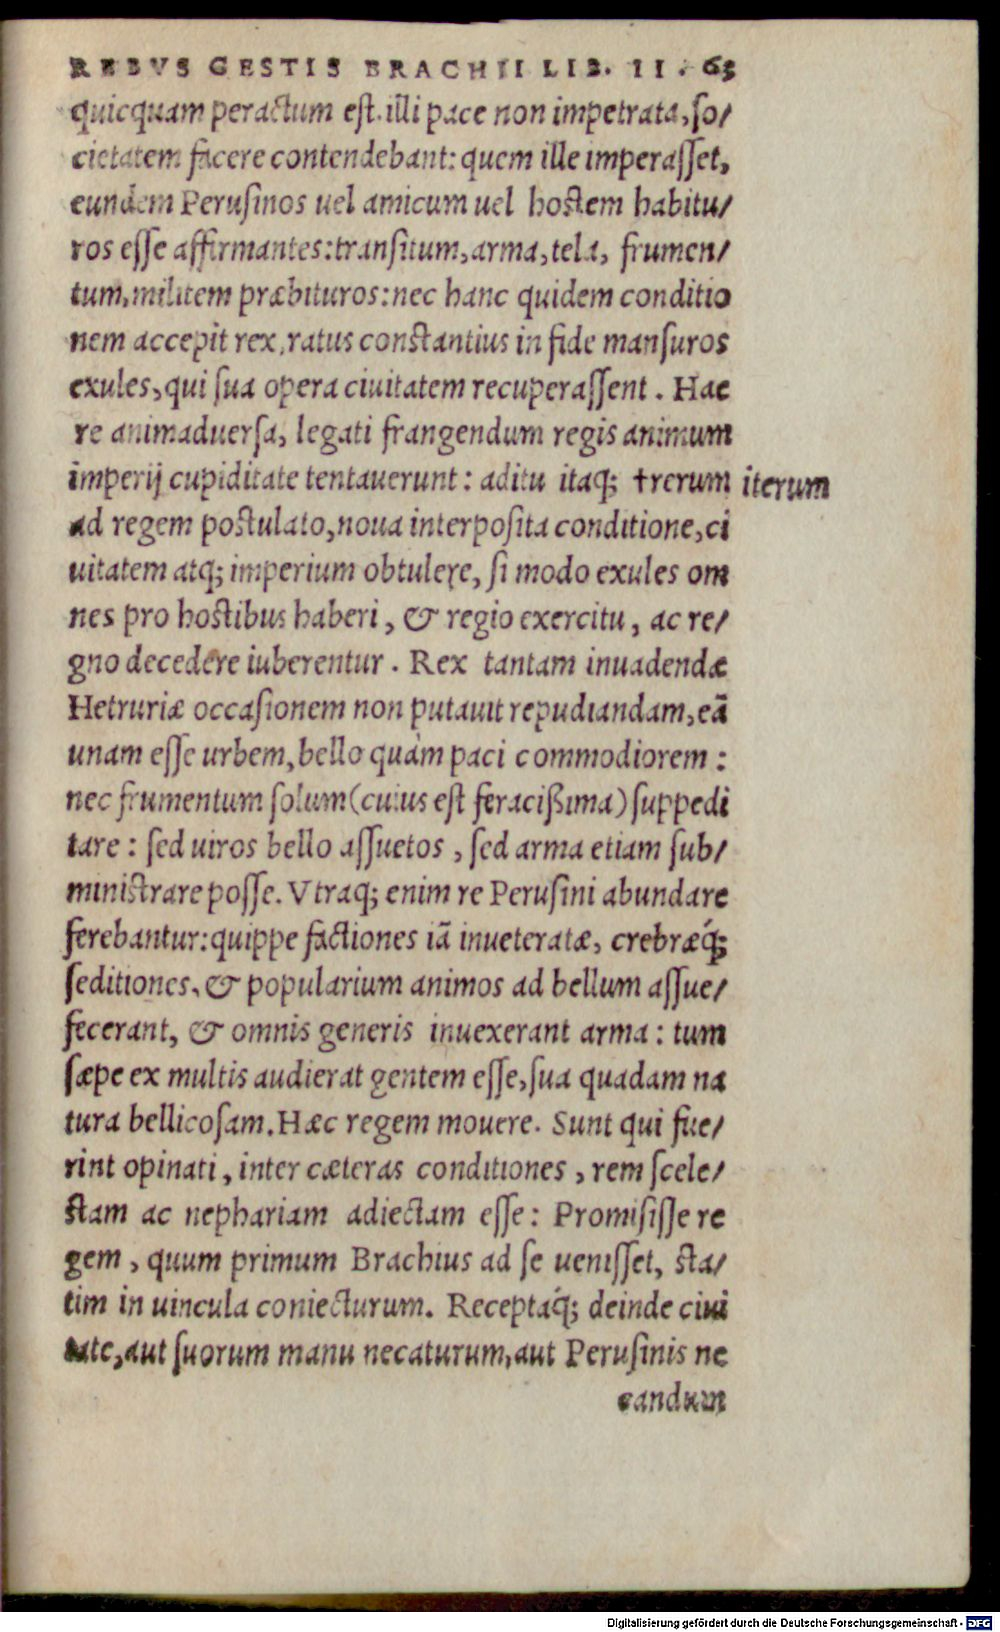 REBVS GESTIS BRACHII LIB. II. 65
quicquam peractum est. illi pace non impetrata, so/
cietatem facere contendebant: quem ille imperasset,
eundem Perusinos uel amicum uel hostem habitu/
ros esse affirmantes: transitum, arma, tela, frumen/
tum, militem præbituros: nec hanc quidem conditio
nem accepit rex, ratus constantius in fide mansuros
exules, qui sua opera ciuitatem recuperassent. Hac
re animaduersa, legati frangendum regis animum
imperij cupiditate tentauerunt: aditu itaq; †rerum iterum
ad regem postulato, noua interposita conditione, ci
uitatem atq; imperium obtulere, si modo exules om
nes pro hostibus haberi, & regio exercitu, ac re/
gno decedere iuberentur. Rex tantam inuadendæ
Hetruriæ occasionem non putauit repudiandam, eā
unam esse urbem, bello quàm paci commodiorem:
nec frumentum solum (cuius est feracißima) suppedi
tare: sed uiros bello assuetos, sed arma etiam sub/
ministrare posse. Vtraq; enim re Perusini abundare
ferebantur: quippe factiones iā inueteratæ, crebræq́;
seditiones, & popularium animos ad bellum assue/
fecerant, & omnis generis inuexerant arma: tum
sæpe ex multis audierat gentem esse, sua quadam na
tura bellicosam. Hæc regem mouere. Sunt qui fue/
rint opinati, inter cæteras conditiones, rem scele/
stam ac nephariam adiectam esse: Promisisse re
gem, quum primum Brachius ad se uenisset, sta/
tim in uincula coniecturum. Receptaq́; deinde ciui
tate, aut suorum manu necaturum, aut Perusinis ne
candum
Digitalisierung gefördert durch die Deutsche Forschungsgemeinschaft - DFG